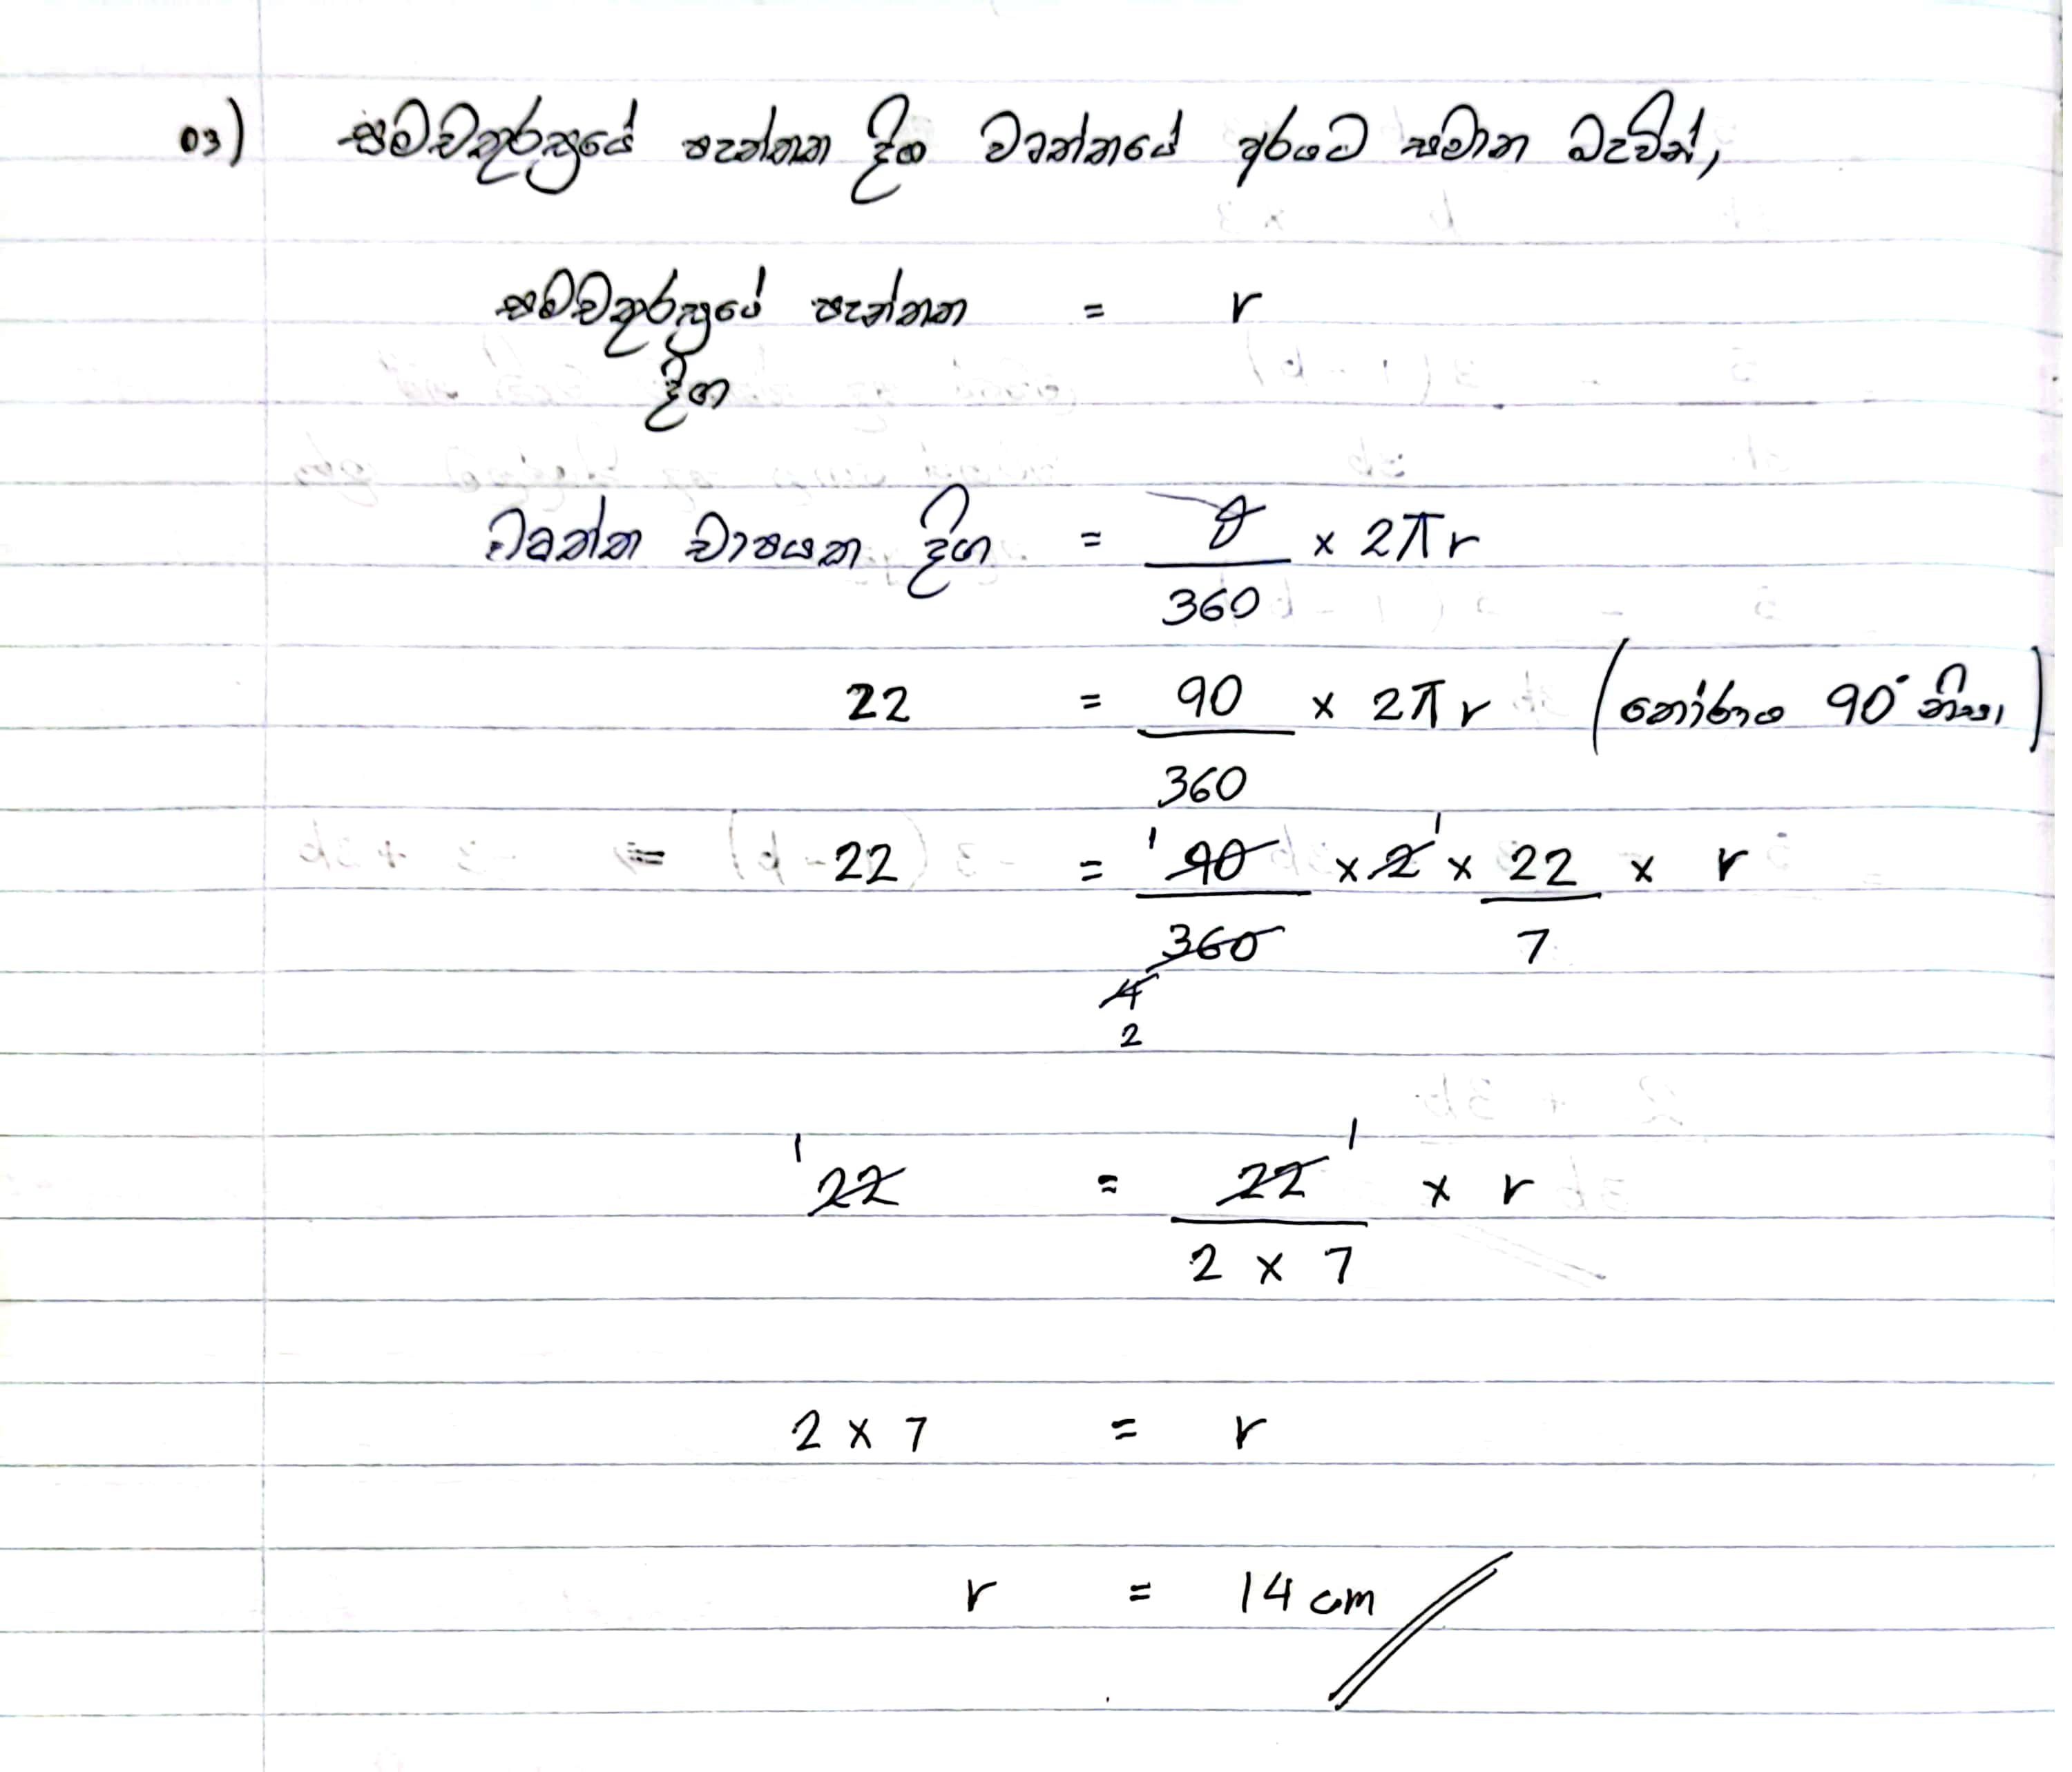 03) සමචතුරස්‍රයේ පැත්තක දිග වෘත්තයේ අරයට සමාන බැවින්,
සමචතුරස්‍රයේ පැත්තක = r
දිග
වෘත්ත චාපයක දිග = θ/360 × 2πr
22 = 90/360 × 2πr (කෝණය 90° නිසා)
22 = 1 90/360 × 2 1 × 22/7 × r
4
2
1 22 = 22 1/2 × 7 × r
2 × 7 = r
r = 14 cm